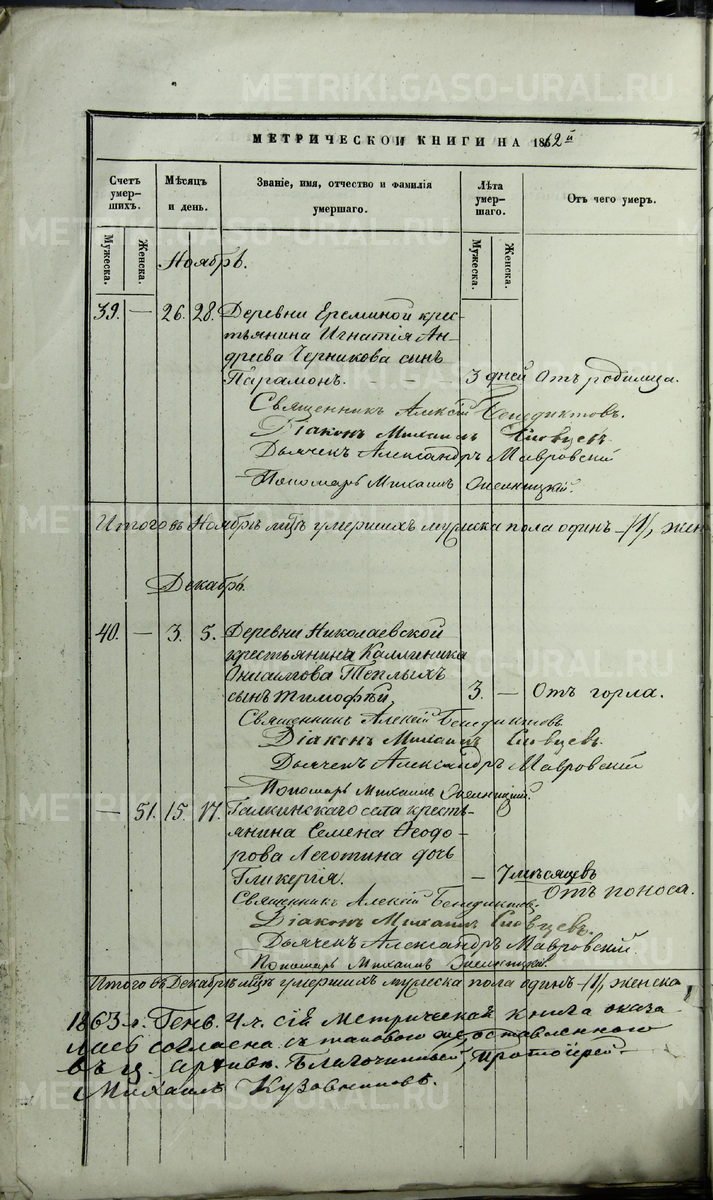 METRIKI.GASO-URAL.RU
МЕТРИЧЕСКОЙ КНИГИ НА 1862й
Счетъ умершихъ.
Мужеска.
Женска.
Мѣсяцъ и день.
Званіе, имя, отчество и фамилія умершаго.
Лѣта умершаго.
Мужеска.
Женска.
Отъ чего умеръ.
Ноябрь.
39. — 26. 28. Деревни Ереминой крес-
тьянина Игнатія Ан-
дреева Черникова сынъ
Парамонъ. 3 дней Отъ родимца.
Священникъ Алексій Бенедиктовъ.
Діаконъ Михаилъ Словцевъ.
Дьячекъ Александръ Мавровскій
Пономарь Михаилъ
Итого въ Ноябрѣ мцѣ умершихъ мужеска пола одинъ /1/, жен
Декабрь.
40. — 3. 5. Деревни Николаевской
крестьянина Каллиника
Теплыхъ
сынъ Тимофѣй, 3. — Отъ горла.
Священникъ Алексій Бенедиктовъ
Діаконъ Михаилъ Словцевъ.
Дьячекъ Александръ Мавровскій
Пономарь Михаилъ
— 51. 15. 17. Галкинскаго села кресть-
янина Семена Ѳеодо-
рова Леготина дочь
Гликерія. — 7 мѣсяцевъ
Отъ поноса.
Священникъ Алексій Бенедиктовъ.
Діаконъ Михаилъ Словцевъ.
Дьячекъ Александръ Мавровскій.
Пономарь Михаилъ
Итого въ Декабрѣ мцѣ умершихъ мужеска пола одинъ /1/, женска
1863 г. Генв. 4 ч. сія Метрическая книга оказа
лась согласна съ таковою же, оставленною
въ ц. архивѣ. Благочинный, Протоіерей
Михаилъ Кузовниковъ.